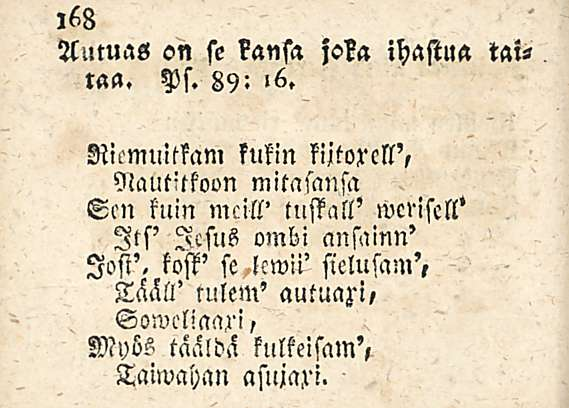 168
Autuas on se kansa joka ihastua tai⸗
taa. Ps. 89: 16.
Riemuitkam kukin kijtoxell',
Nautitkoon mitasansa
Sen kuin meill' tuskall' werisell'
Its' Jesus ombi ansainn'
Josi', kosk' se lewii' sielusam',
Tääll' tulem' autuaxi,
Soweliaaxi,
Myös tääldä kulkeisam',
Taiwahan asujaxi.